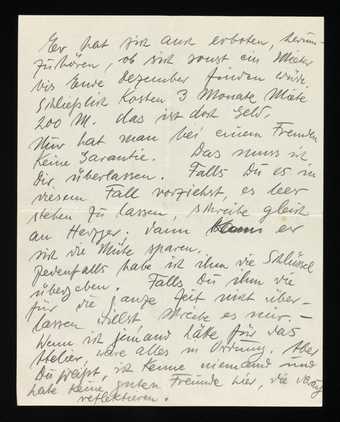 Er hat sich auch erboten, herum-
zuhören, ob sich sonst ein Mieter
bis Ende Dezember finden würde.
Schließlich kosten 3 Monate Miete
200 M. das ist doch Geld.
Nur hat man bei einem Fremden
keine Garantie. Das muss ich
Dir überlassen. Falls Du es in
diesem Fall vorziehst, es leer
stehen zu lassen, schreibe gleich
an Herzger; dann kann er
sich die Mühe sparen.
Jedenfalls habe ich ihm die Schlüssel
übergeben. Falls Du ihm die
für die ganze Zeit nicht über-
lassen willst, schreibe es mir. –
Wenn ich jemand hätte für das
Atelier, wäre alles in Ordnung. Aber
Du weißt, ich kenne niemand und
habe keine guten Freunde hier, die
reflektieren.